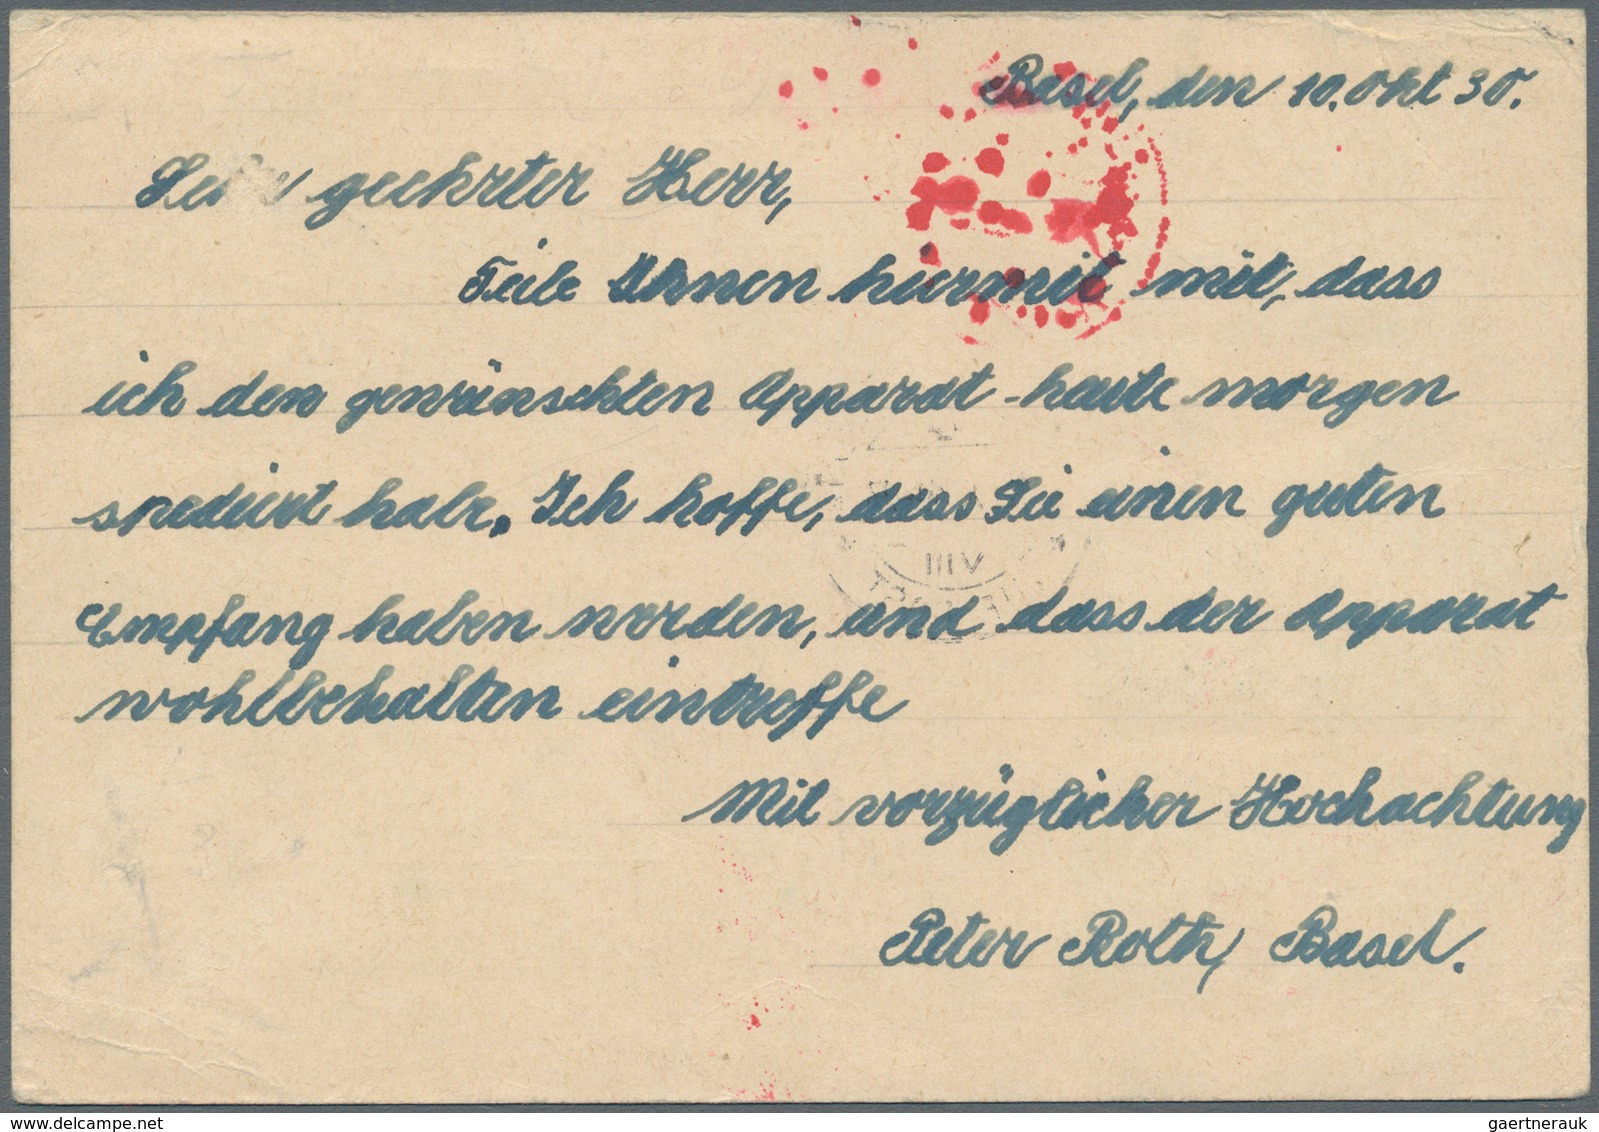 Basel, den 10. Okt 30.
geehrter Herr,
Teile Ihnen hiermit mit, dass
ich den gewünschten Apparat heute morgen
spediert habe. Ich hoffe, dass Sie einen guten
Empfang haben werden, und dass der Apparat
wohlbehalten eintreffe
VIII
Mit vorzüglicher Hochachtung
Peter Roth, Basel.
gaertnerauk